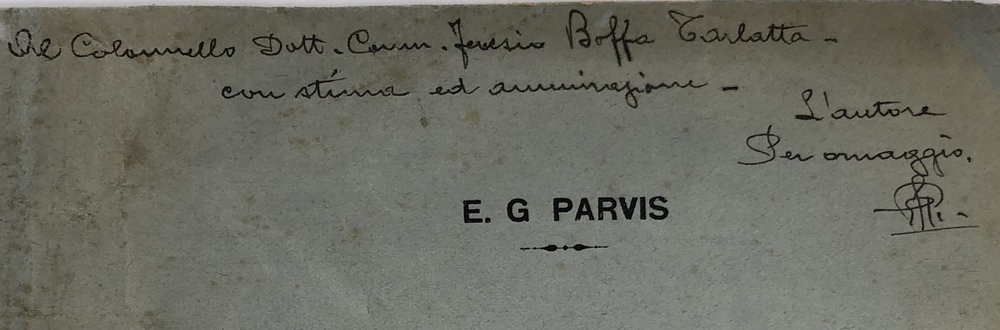 Al Colonnello Dott. Comm. Boffa Tarlatta -
con stima ed ammirazione -
L'autore
Per omaggio.
E. G PARVIS